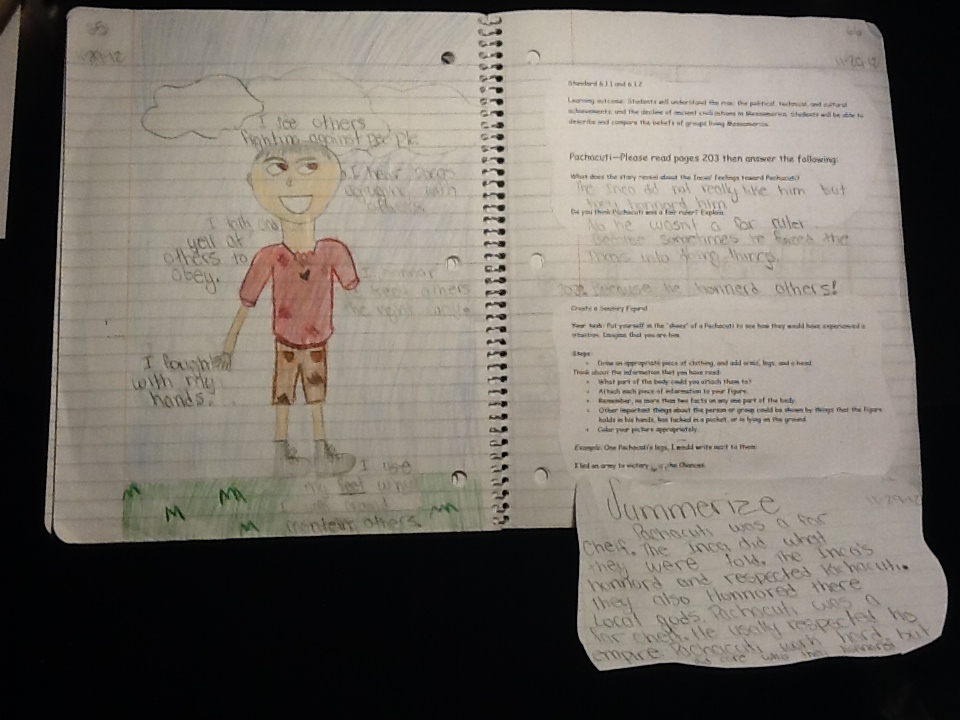 65
11-29-12
I see others
fighting against people.
I hear
I talk and
yell at
others to
obey.
I honnor
& keep others
the right
I fought
with my
hands.
I use
my feet
others.
66
11-29-12
Standard 6.1.1 and 6.1.2
Learning outcome: Students will understand the rise, the political, technical, and cultural
achievements, and the decline of ancient civilizations in Mesoamerica. Students will be able to
describe and compare the beliefs of groups living Mesoamerica.
Pachacuti—Please read pages 203 then answer the following:
What does the story reveal about the Incas' feelings toward Pachacuti?
The Inca did not really like him but
they honnard him
Do you think Pachacuti was a fair ruler? Explain.
No he wasnt a far ruler
becuse sometimes he forced the
Incas into doing things.
because he honnerd others!
Create a Sensory Figure!
Your task: Put yourself in the "shoes" of a Pachacuti to see how they would have experienced a
situation. Imagine that you are him.
Steps:
Draw an appropriate piece of clothing, and add arms, legs, and a head.
Think about the information that you have read:
What part of the body could you attach them to?
Attach each piece of information to your figure.
Remember, no more than two facts on any one part of the body.
Other important things about the person or group could be shown by things that the figure
holds in his hands, has tucked in a pocket, or is lying on the ground.
Color your picture appropriately.
Example: One Pachacuti's legs, I would write next to them:
I led an army to victory the Chancas.
Summerize
11-29-12
Pachacuti was a far
cheif. The Inca did what
they were told. The Inca's
honnord and respected Pachacuti.
They also Honnored there
Local gods. Pachacuti was a
far cheif. He usally respected his
empire Pachacuti work hard, but
who they honnored